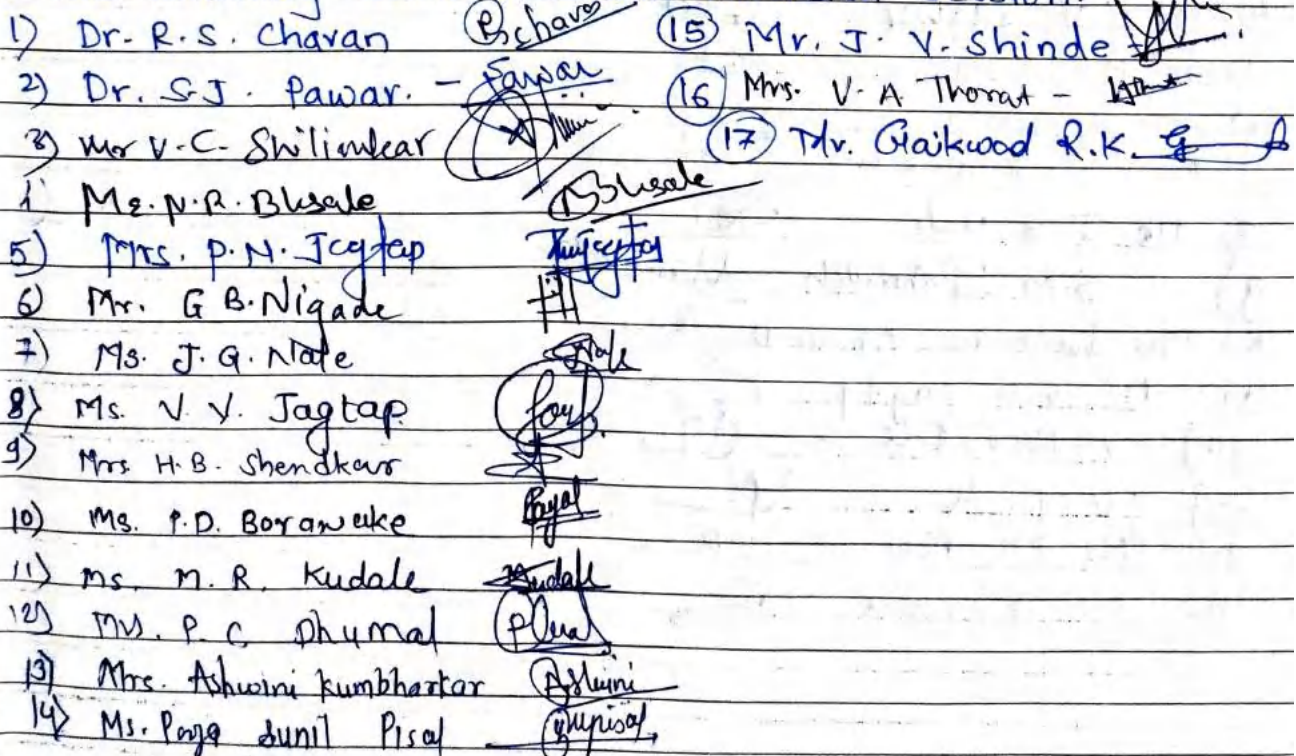 1) Dr. R.S. Chavan Rschavan
2) Dr. S.J. Pawar. - Pawar
3) Mr V.C. Shilimkar
Ms. N.R. Bhsale Bhsale
5) Mrs. P.N. Jagtap Pnjagtap
6) Mr. G B. Nigade
7) Ms. J.G. Nale Nale
8) Ms. V.V. Jagtap
9) Mrs H.B. Shendkar
10) Ms. P.D. Borawake Payal
11) Ms. M.R. Kudale Kudale
12) Mrs. P.C Dhumal
13) Mrs. Ashwini Kumbharkar Ashwini
14) Ms. Pooja Sunil Pisal
15 Mr. J. V. Shinde
16 Mrs. V.A Thorat -
17 Mr. Gaikwad R.K.